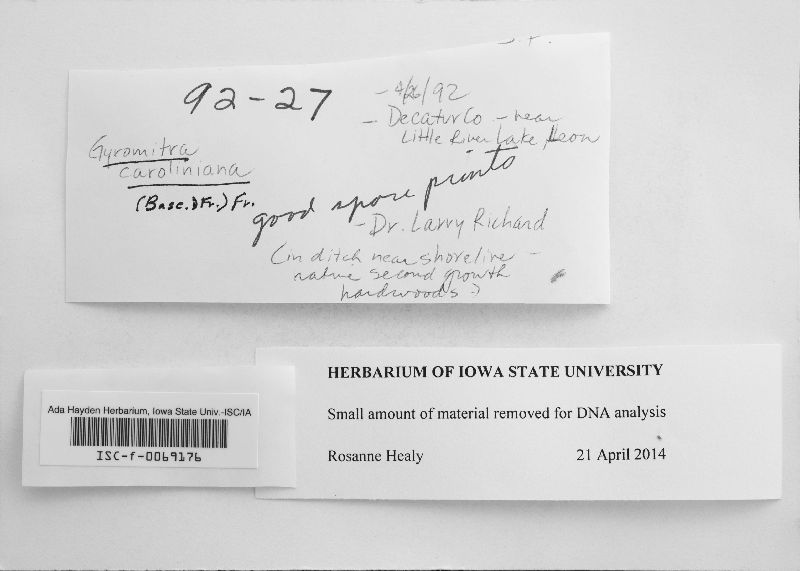 92-27
- 4/26/92
- Decatur Co - near
Little River Lake, Leon
Gyromitra
caroliniana
(Bosc.)Fr.) Fr.
good spore prints
- Dr. Larry Richard
(in ditch near shoreline -
native second growth
hardwoods)
Ada Hayden Herbarium, Iowa State Univ.-ISC/IA
ISC-f-0069176
HERBARIUM OF IOWA STATE UNIVERSITY
Small amount of material removed for DNA analysis
Rosanne Healy 21 April 2014